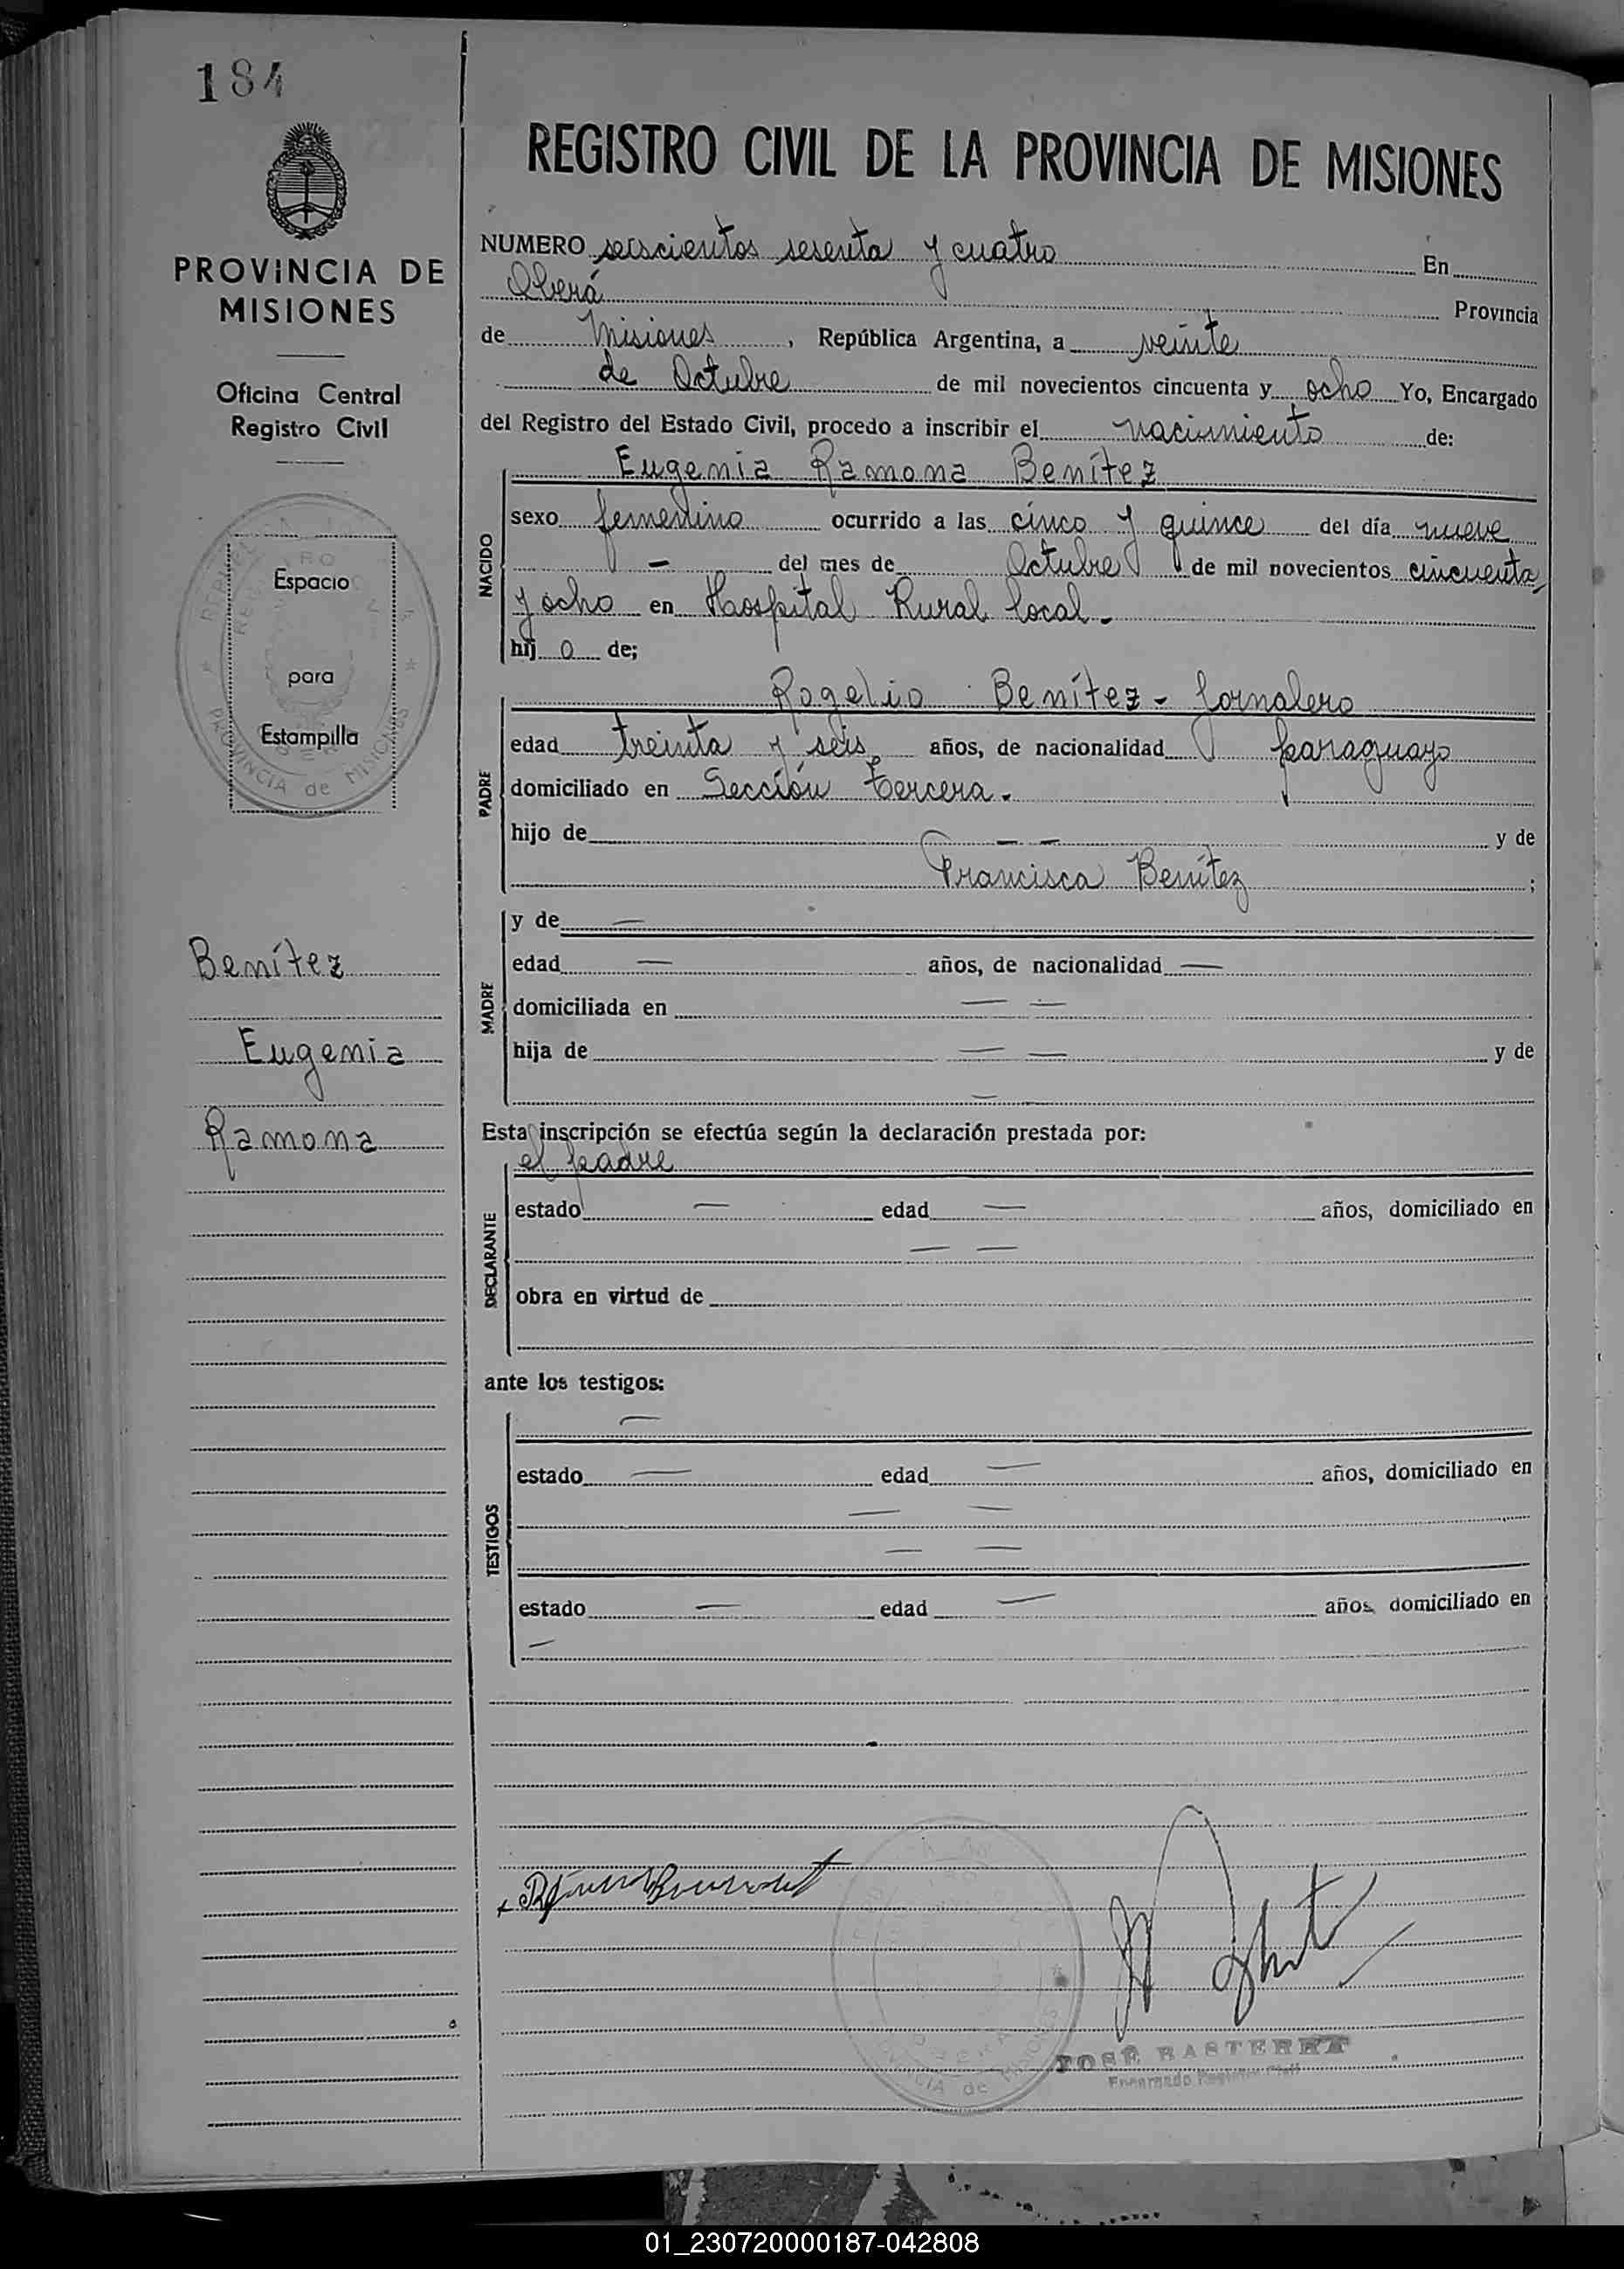 184
PROVINCIA DE
MISIONES
Oficina Central
Registro Civil
Espacio
para
Estampilla
PROVINCIA de MISIONES
Benítez
Eugenia
Ramona
REGISTRO CIVIL DE LA PROVINCIA DE MISIONES
NUMERO seiscientos sesenta y cuatro En
Oberá Provincia
de Misiones, República Argentina, a veinte
de Octubre de mil novecientos cincuenta y ocho Yo, Encargado
del Registro del Estado Civil, procedo a inscribir el nacimiento de:
Eugenia Ramona Benítez
NACIDO
sexo femenino ocurrido a las cinco y quince del día nueve
- del mes de Octubre de mil novecientos cincuenta
y ocho en Hospital Rural local.-
hij a de;
Rogelio Benítez - Jornalero
PADRE
edad treinta y seis años, de nacionalidad paraguayo
domiciliado en Sección tercera.-
hijo de — — y de
Francisca Benítez ;
MADRE
y de —
edad — años, de nacionalidad —
domiciliada en — —
hija de — — y de
—
Esta inscripción se efectúa según la declaración prestada por:
el padre
DECLARANTE
estado — edad — años, domiciliado en
— —
obra en virtud de
ante los testigos:
—
TESTIGOS
estado — edad — años, domiciliado en
— —
— —
estado — edad — años, domiciliado en
—
JOSÉ BASTERRET
Encargado Registro Civil
01_230720000187-042808